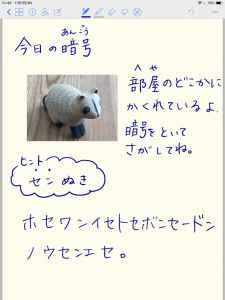 あんごう
今日の暗号
へや
部屋のどこかに
かくれているよ、
暗号をといて
さがしてね。
ヒント
センぬき
ホセワンイセトセボンセードン
ノウセンエセ。